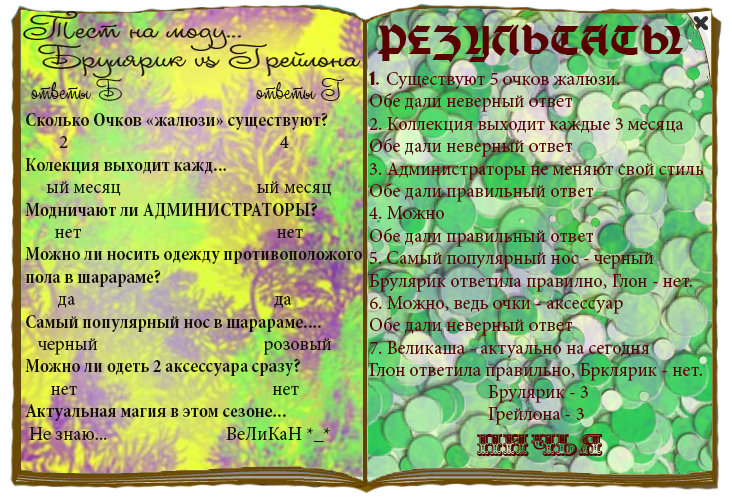 Тест на моду...
Брулярик vs Грейлона
ответы Б ответы Г
Сколько Очков «жалюзи» существуют?
2 4
Колекция выходит кажд...
ый месяц ый месяц
Модничают ли АДМИНИСТРАТОРЫ?
нет нет
Можно ли носить одежду противоположого
пола в шарараме?
да да
Самый популярный нос в шарараме....
черный розовый
Можно ли одеть 2 аксессуара сразу?
нет нет
Актуальная магия в этом сезоне...
Не знаю... ВеЛиКаН *_*
РЕЗУЛЬТАТЫ
1. Существуют 5 очков жалюзи.
Обе дали неверный ответ
2. Коллекция выходит каждые 3 месяца
Обе дали неверный ответ
3. Администраторы не меняют свой стиль
Обе дали правильный ответ
4. Можно
Обе дали правильный ответ
5. Самый популярный нос - черный
Брулярик ответила правилно, Глон - нет.
6. Можно, ведь очки - аксессуар
Обе дали неверный ответ
7. Великаша - актуально на сегодня
Глон ответила правильно, Брклярик - нет.
Брулярик - 3
Грейлона - 3
НИЧЬЯ